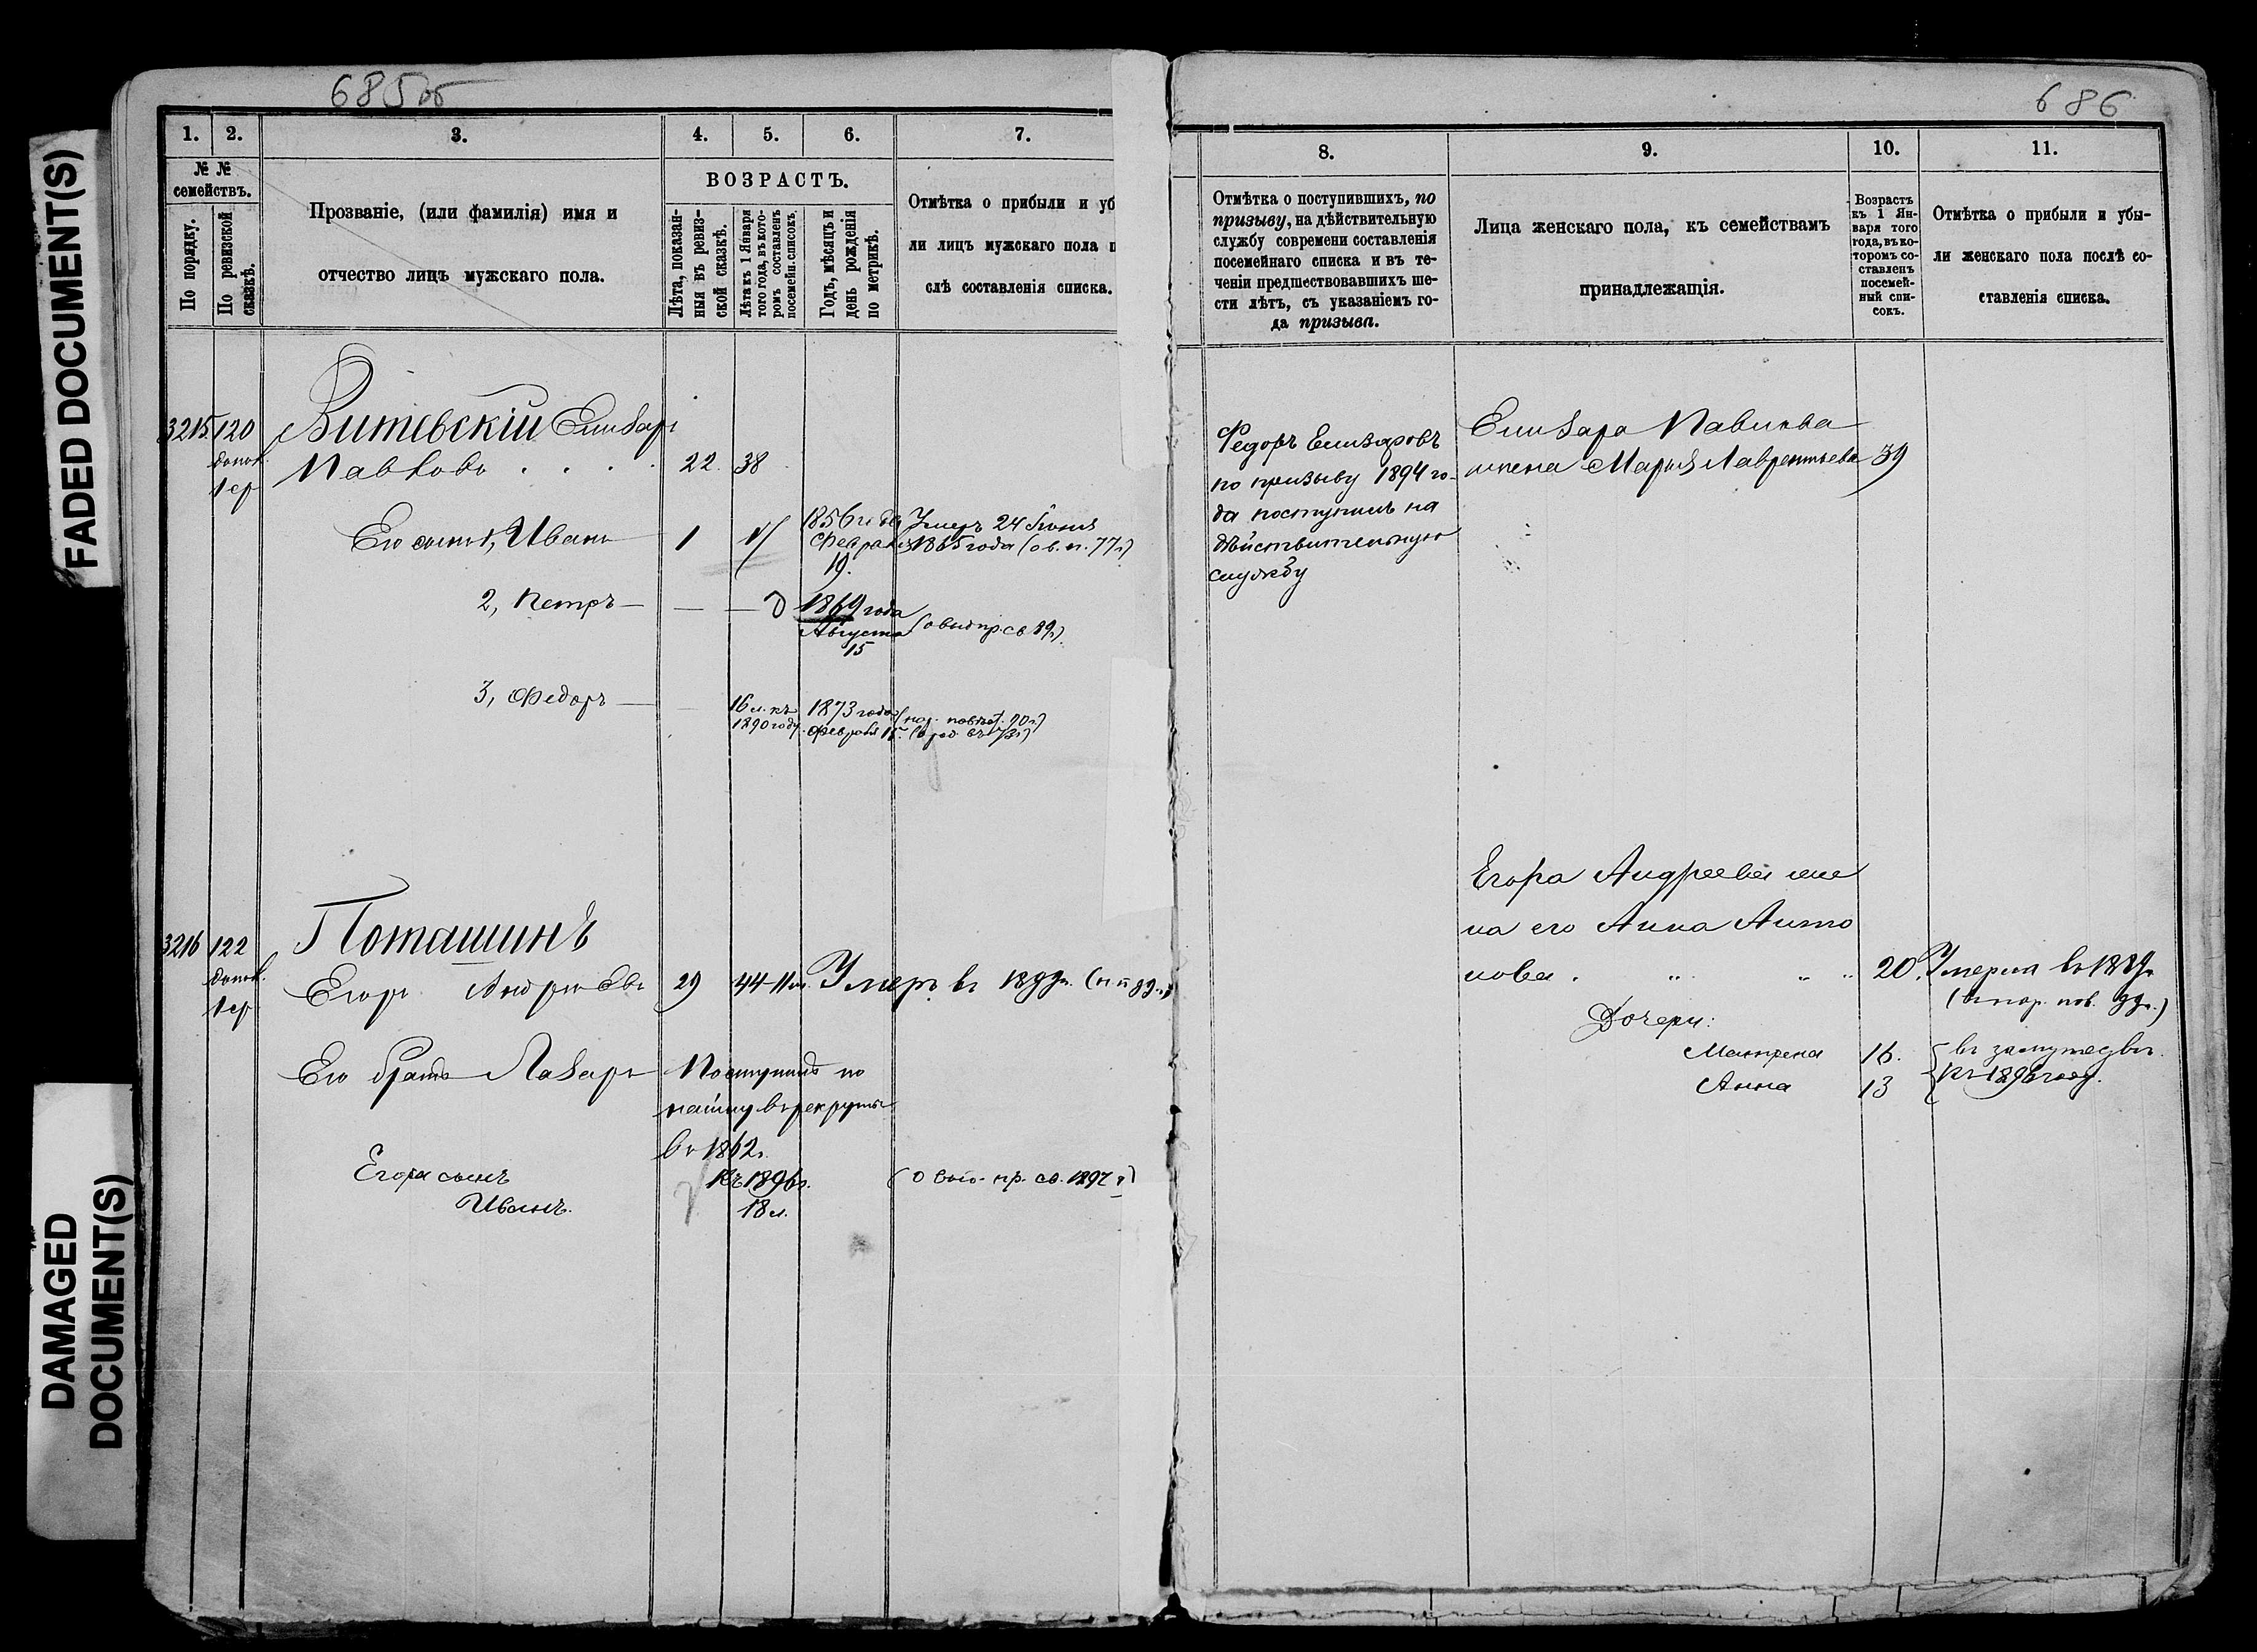 FADED DOCUMENT(S)
DAMAGED
DOCUMENT(S)
685об
1.
2.
3.
4.
5.
6.
7.
№ №
семействъ.
По порядку.
По ревизской
сказкѣ.
Прозваніе, (или фамилія) имя и
отчество лицъ мужскаго пола.
ВОЗРАСТЪ.
Лѣта, показан-
ныя въ ревиз-
ской сказкѣ.
Лѣта къ 1 Января
того года, въ кото-
ромъ составленъ
посемейн. списокъ.
Годъ, мѣсяцъ и
день рожденія
по метрикѣ.
Отмѣтка о прибыли и уб
ли лицъ мужскаго пола п
слѣ составленія списка.
3215
120
допол.
1 ср
Витевскій Елизаръ
Павловъ
22
38
Его сынъ 1, Иванъ
1
1856 года
Февраля
19.
Умеръ 24 Іюня
1865 года (о в. п. 77 г)
2, Петръ
1869 года
Августа
15
(о вып пр. св. 89 г)
3, Федоръ
16 л. къ
1890 году.
1873 года
Февраля 15
3216
122
допол.
1 ср
Поташинъ
Егоръ Андреевъ
29
44
Умеръ въ
Его братъ Лазарь
Поступилъ по
найму въ рекруты
въ 1862 г.
Егора сынъ
Иванъ.
Къ 1896 г.
18 л.
(о вып. пр. св. 1897 г)
686
8.
9.
10.
11.
Отмѣтка о поступившихъ, по
призыву, на дѣйствительную
службу современи составленія
посемейнаго списка и въ те-
ченіи предшествовавшихъ ше-
сти лѣтъ, съ указаніемъ го-
да призыва.
Лица женскаго пола, къ семействамъ
принадлежащія.
Возрастъ
къ 1 Ян-
варя того
года, въ ко-
торомъ со-
ставленъ
посемей-
ный спи-
сокъ.
Отмѣтка о прибыли и убы-
ли женскаго пола послѣ со-
ставленія списка.
Федоръ Елизаровъ
по призыву 1894 го-
да поступилъ на
дѣйствительную
службу
Елизара Павлова
жена Марья Лаврентьева
39
Егора Андреева же
на его Анна Анто
нова
20
Умерла въ
Дочери:
Матрена
16.
въ замужедвѣ
Анна
13
къ 1896 году.